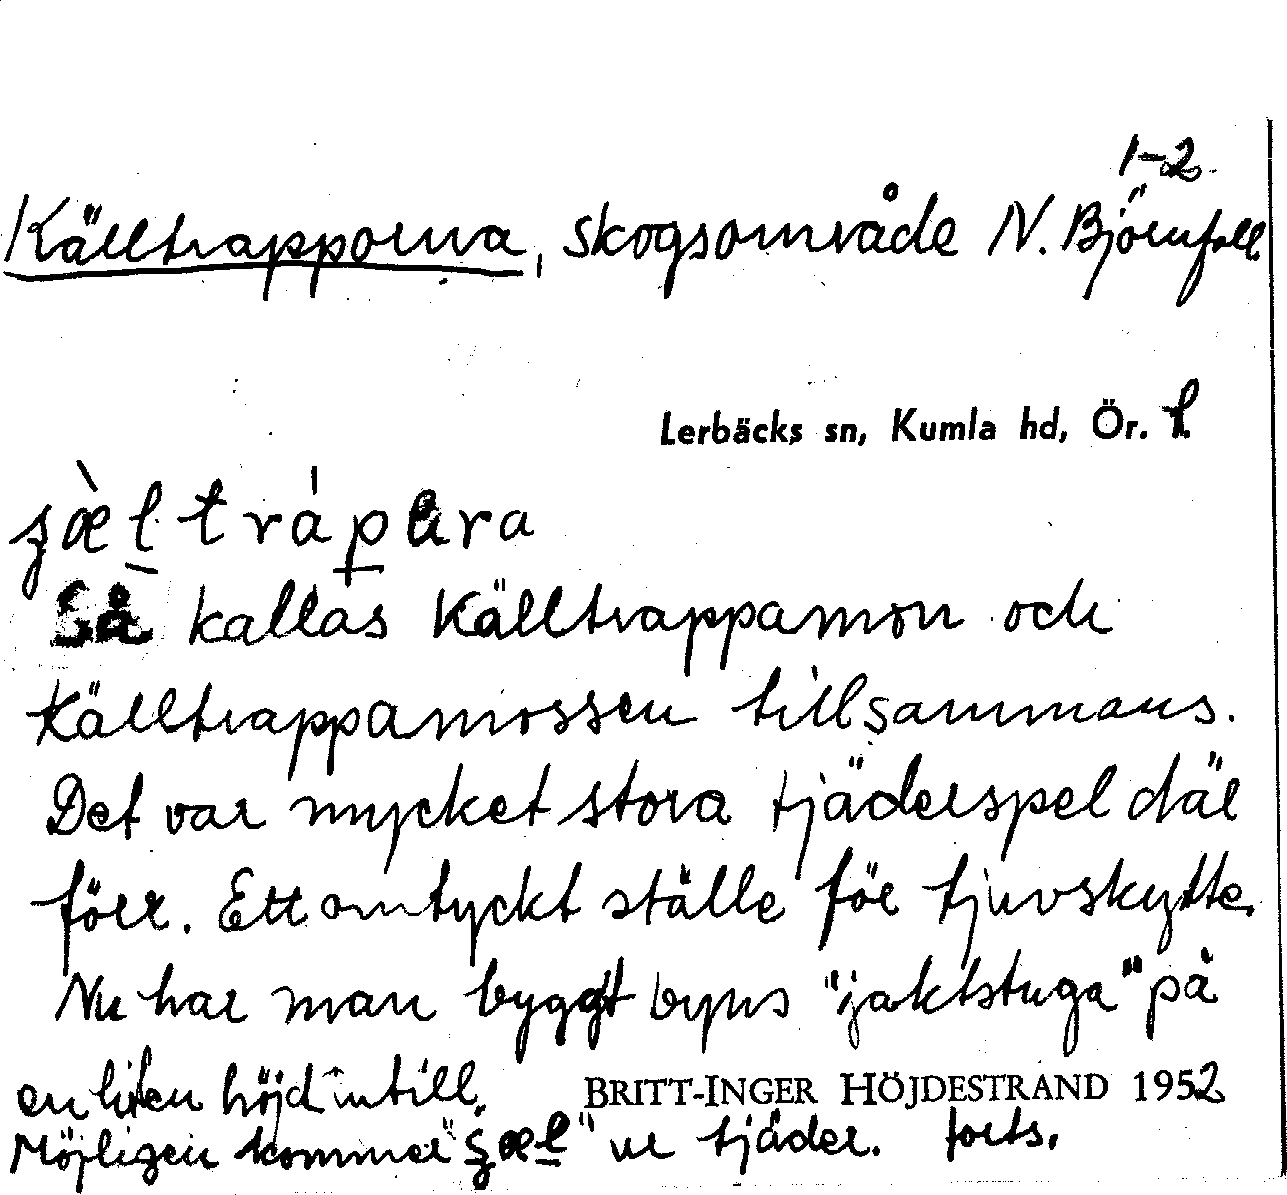 1-2
Källtrapporna, skogsområde N. Björnfall
Lerbäcks sn, Kumla hd, Ör. l.
Så kallas Källtrappamon och
Källtrappamossen tillsammans.
Det var mycket stora tjäderspel där
förr. Ett omtyckt ställe för tjuvskytte.
Nu har man byggt byns "jaktstuga" på
en liten höjd intill.
BRITT-INGER HÖJDESTRAND 1952
Möjligen kommer ur tjäder. forts.